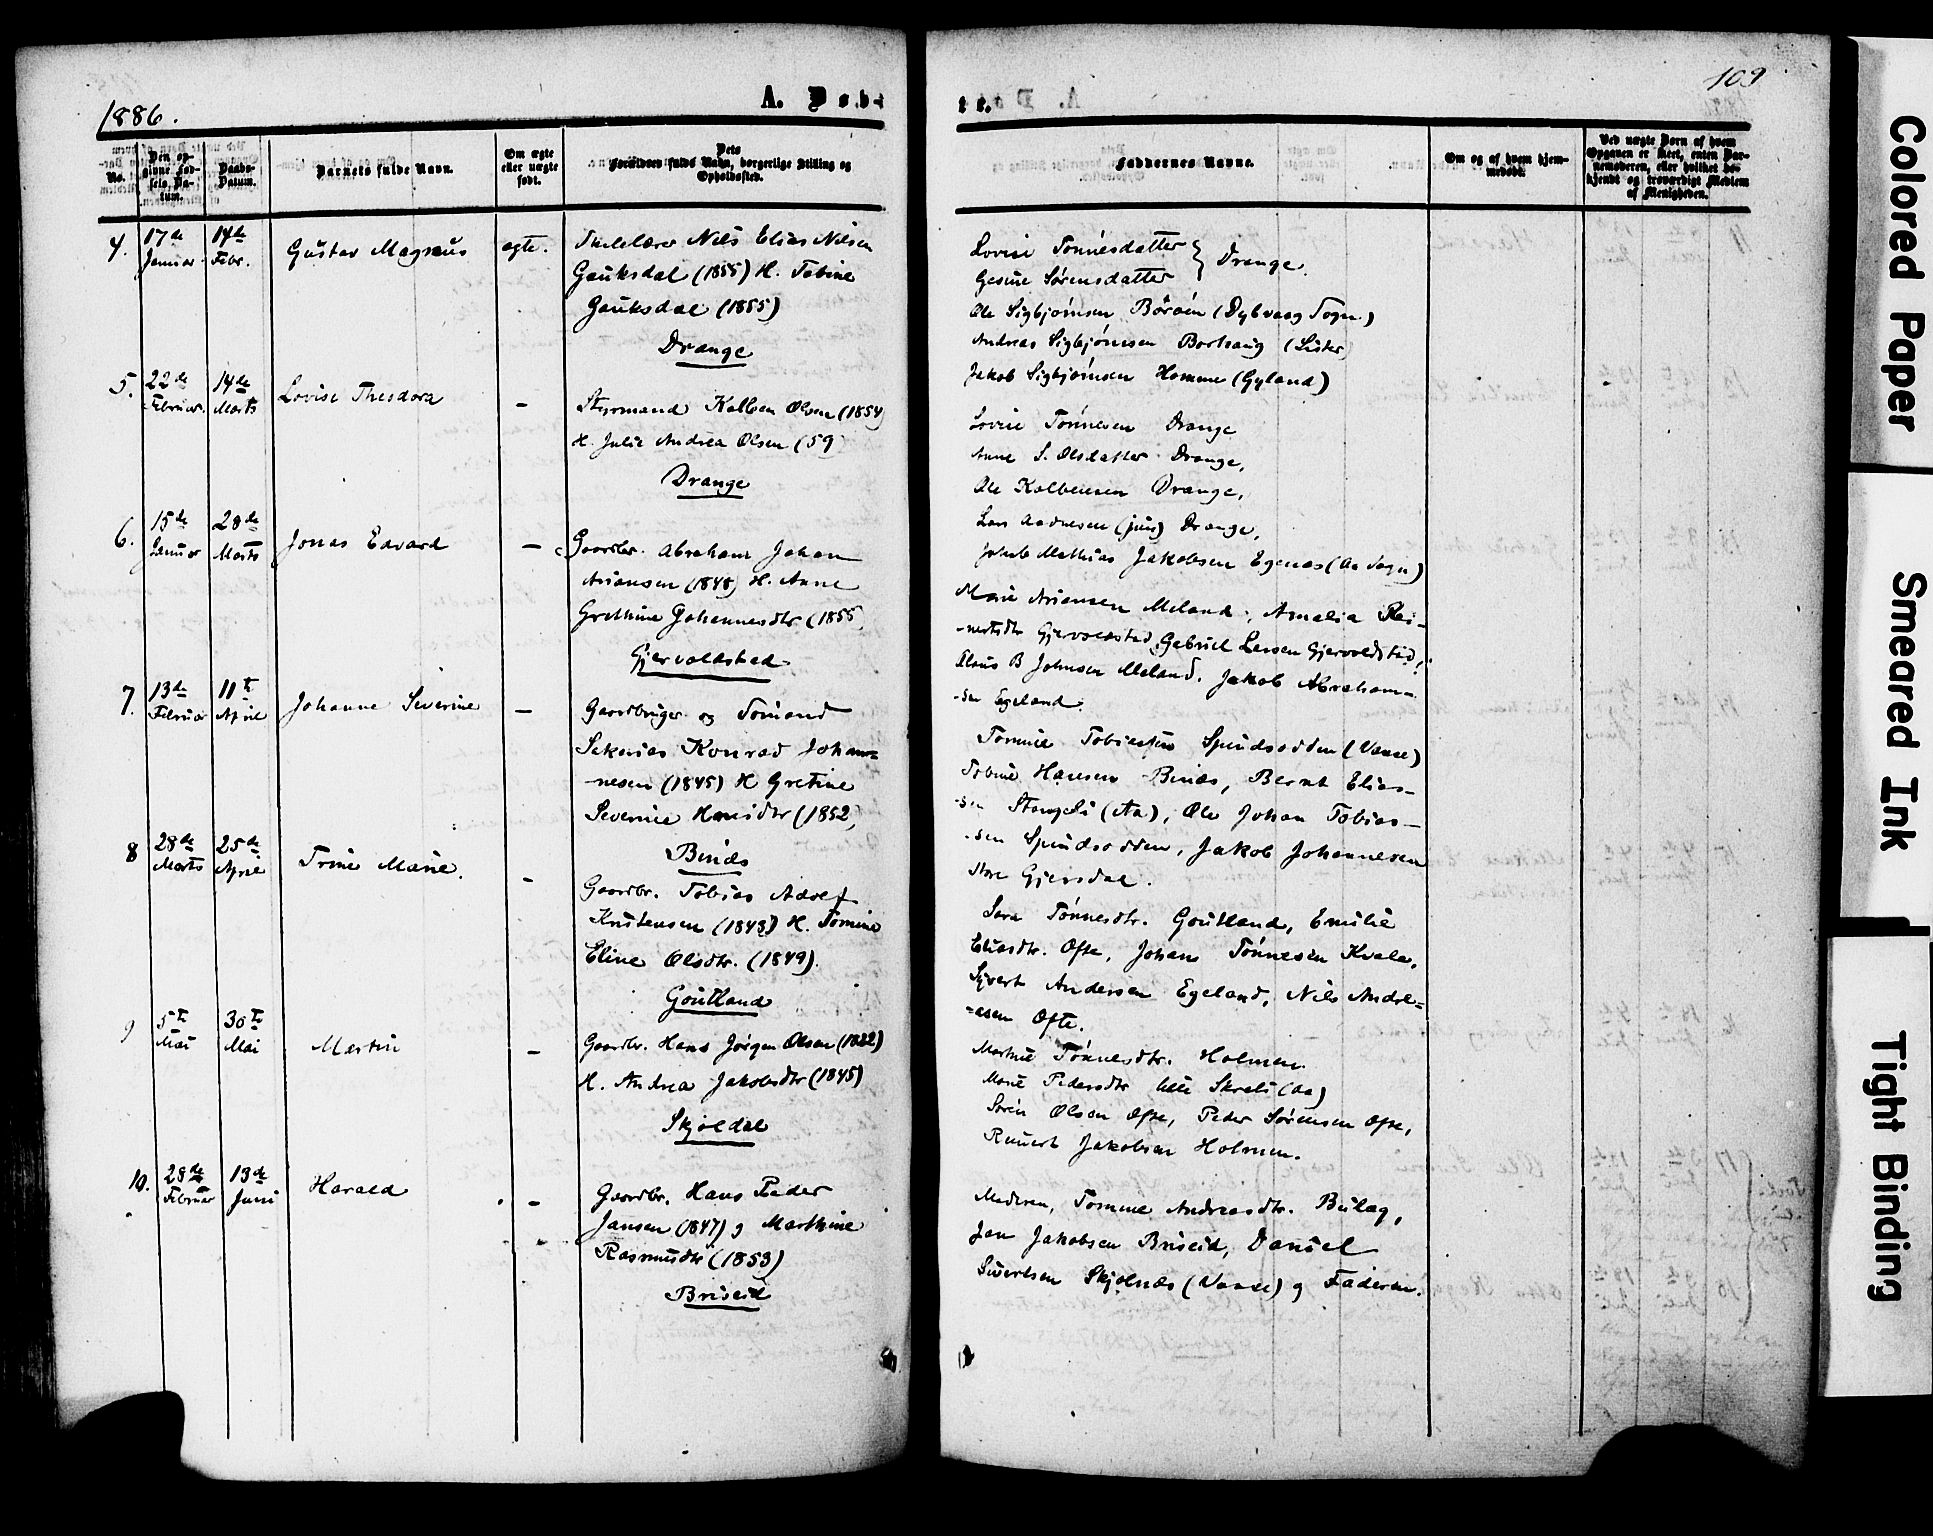 1886.
A. Døb-
No.
Den op-
givne Fød-
sels Da-
tum.
Daabs-
Datum.
Barnets fulde Navn.
Om ægte
eller uægte
født.
Dets
Forældres fulde Navn, borgerlige Stilling og
Opholdssted.
4.
17de
Januar
14de
Febr.
Gustav Magnus
ægte.
Skolelærer Nils Elias Nilsen
Gauksdal (1855) H. Tobine
Gauksdal (1855)
Drange
5.
22de
Februar.
14de
Marts
Lovise Theodora
-
Styrmand Kolben Olsen (1854)
H. Julie Andrea Olsen (59)
Drange
6.
15de
Januar
28de
Marts
Jonas Edvard
-
Gaardbr. Abraham Johan
Ariansen (1848) H. Anne
Grethine Johannesdtr (1855)
Gjervoldstad
7.
13de
Februar
11te
April
Johanne Severine
-
Gaardbruger og Sømand
Sakarias Konrad Johan-
-nesen (1845) H Gretine
Severine Hansdtr (1852)
Binæs
8
28de
Marts
25de
April
Trine Marie.
-
Gaardbr. Tobias Adolf
Knutensen (1843) H. Tomine
Eline Olsdtr. (1849).
Goutland
9
5te
Mai
30te
Mai
Martin
-
Gaardbr. Hans Jørgen Olsen (1832)
H. Andrea Jakobsdtr (1845)
Skjoldal
10.
28de
Februar
13de
Juni
Harald
-
Gaardbr. Hans Peder
Jansen (1847) og Marthine
Rasmusdtr (1853)
Briseid
te.
109
Faddernes Navne.
Om og af hvem hjem-
medøbt.
Ved uægte Børn af hvem
Opgaven er skeet, enten Bar-
nemoderen, eller hvilket be-
kjendt og troværdigt Medlem
af Menigheden.
Lovise Tønnesdatter } Drange.
Gesine Sørensdatter
Ole Sigbjørnsen Børøen (Dybvaag Sogn)
Andreas Sigbjørnsen Borhaug (Lister)
Jakob Sigbjørnsen Homme (Gyland)
Lovise Tønnesen Drange
Anne S. Olsdatter Drange,
Ole Kolbensen Drange,
Lars Aadnesen (jun) Drange,
Jakob Mathias Jakobsen Egenæs (Aa Sogn)
Marie Ariansen Meland, Amalia Rei-
-nertsdtr Gjervoldstad, Gabriel Larsen Gjervoldstad,
Claus B Johnsen Meland, Jakob Abraham-
-sen Egeland.
Tomine Tobiasen Spindsodden (Vanse)
Tobine Hansen Binæs, Bernt Elias-
-sen Stangeli (Aa), Ole Johan Tobias-
-sen Spindsodden, Jakob Johannesen
Store Gjersdal.
Sara Tønnesdtr. Goutland, Emilie
Eliasdtr. Ofte, Johans Tønnesen Kvale,
Sivert Andersen Egeland, Nils Andre-
-asen Ofte.
Martine Tønnesdtr. Holmen.
Marie Pedersdtr lille Skreli (Aa)
Søren Olsen Ofte, Peder Sørensen Ofte,
Reinert Jakobsen Holmen.
Moderen, Tomine Andreasdtr. Bulæg,
Jan Jakobsen Briseid, Daniel
Sivertsen Skjolnæs (Vanse) og Faderen.
Colored Paper
Smeared Ink
Tight Binding